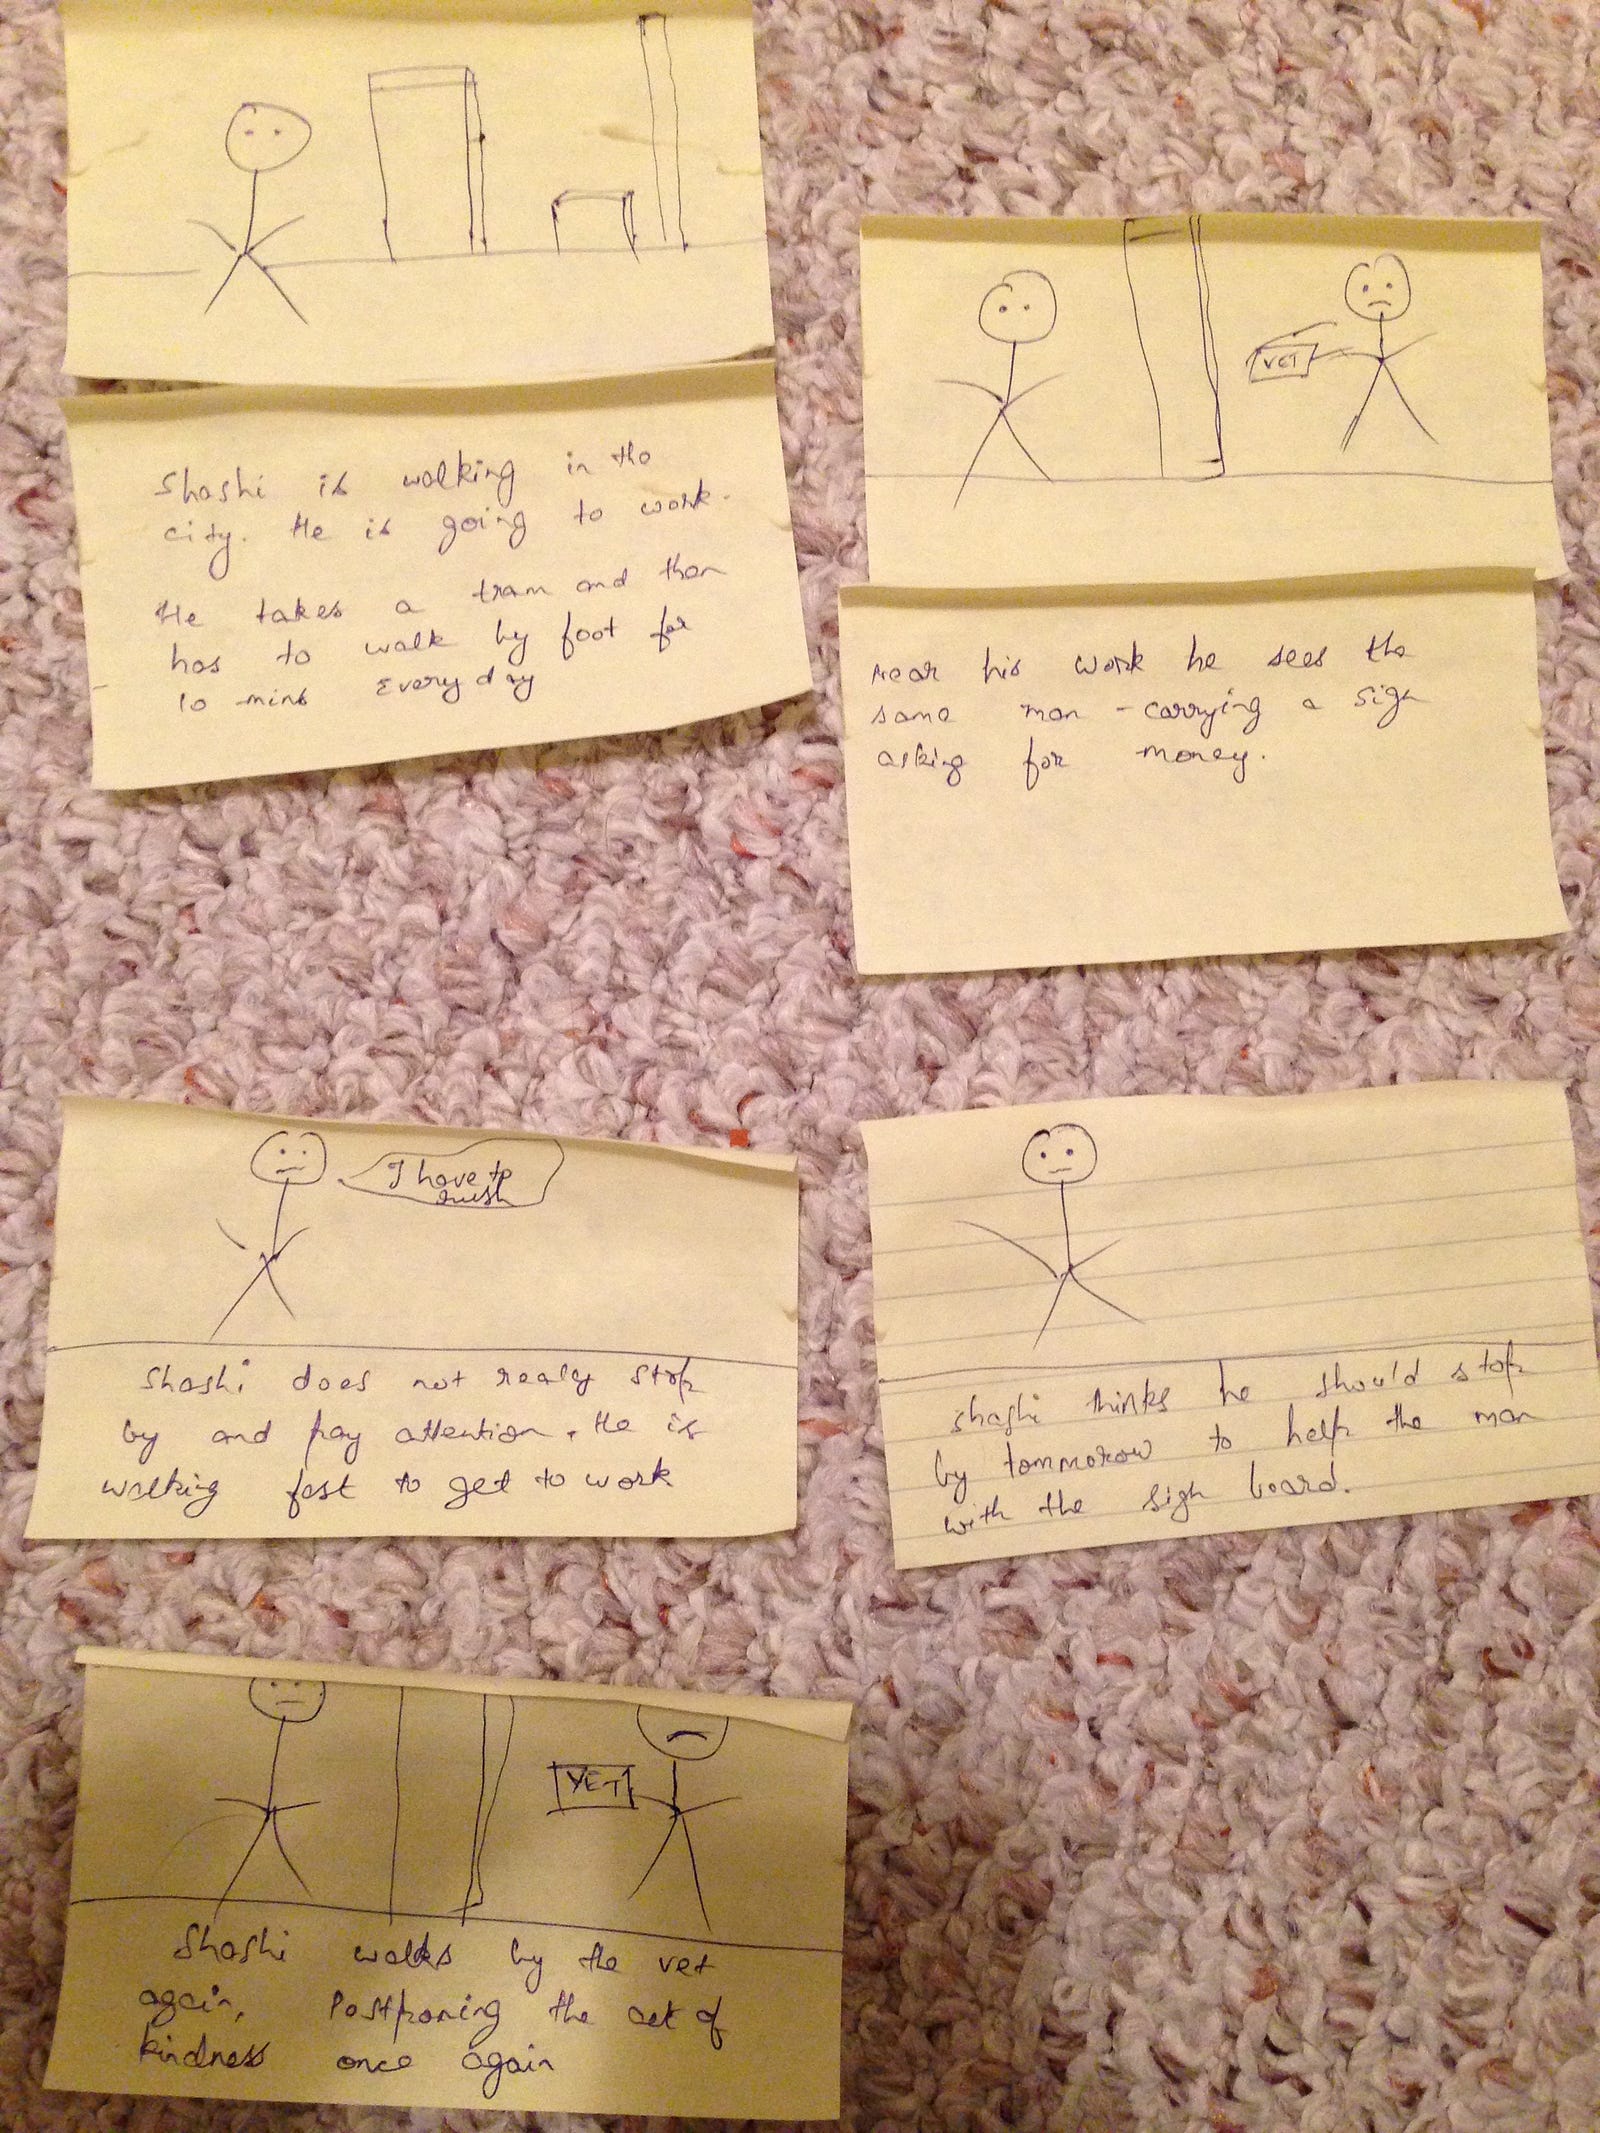 Shashi is walking in the
city. He is going to work.
He takes a tram and then
has to walk by foot for
10 mins everyday
VET
Near his work he sees the
same man - carrying a sign
asking for money.
I have to
rush
Shashi does not realy stop
by and pay attention. He is
walking fast to get to work
Shashi thinks he should stop
by tommorow to help the man
with the sign board.
VET
Shashi walks by the vet
again, Postponing the act of
kindness once again